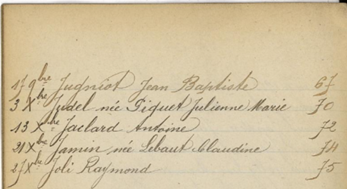 17 9bre Jugniot Jean Baptiste 67
3 Xbre Judel née Piguet Julienne Marie 70
13 Xbre Jaclard Antoine 72
21 Xbre Jamin née Lebaut Claudine 74
27 Xbre Joli Raymond 75